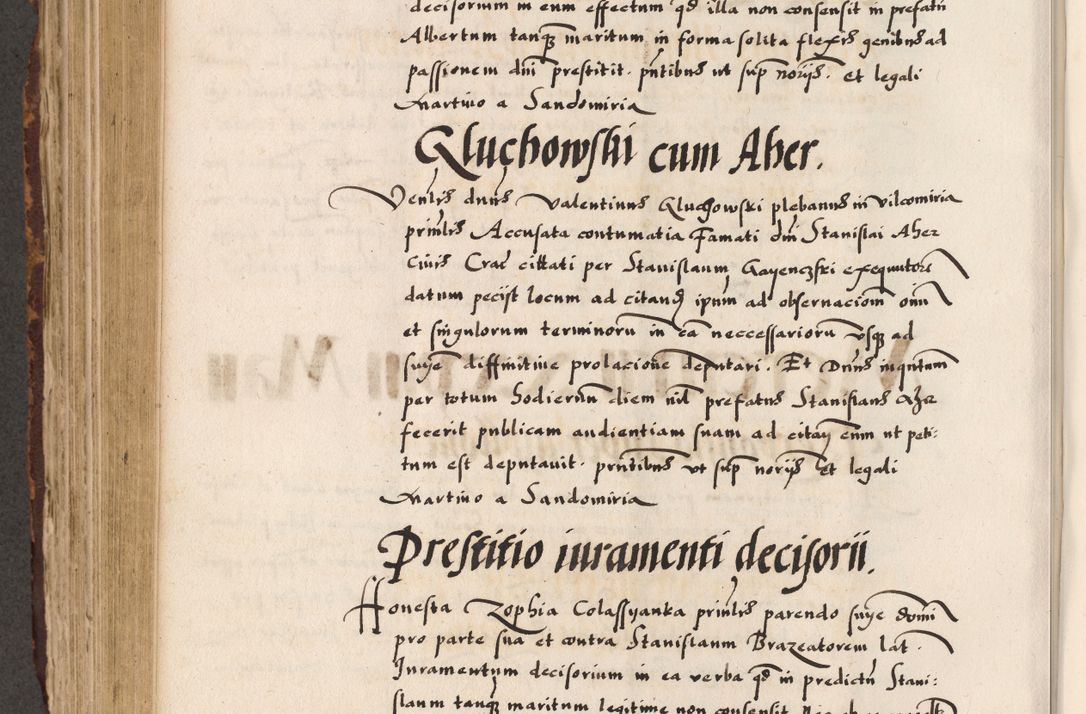 decisorium in eum effectum qd illa non consensit in prefatũ
Albertum tanq̃ maritum in forma solita flexis genibus ad
passionem dni prestitit. pntibus ut sup norijs. et legali
Martino a Sandomiria
Gluchowski cum Aher.
Venlis dnus Valentinus Gluchowski plebanus in Vilcomiria
prinlis Accusata contumatia Famati dni Stanislai Aher
civis Crac cittati per Stanislaum Gayenczski exequutore
datum pecijt locum ad citand ipum ad observaciom oim
et singulorum terminoru in ea neccessarioru usq ad
suye diffinitive prolacione deputari. Et Dnus inquitum
per totum hodiernu diem nil prefatus Stanislaus Aher
fecerit publicam audientiam suam ad citan eum ut peti:
tum est deputavit. prntibus ut sup norijs et legali
Martino a Sandomiria
Prestitio iuramenti decisorii.
Honesta Zophia Colassyanka prinlis parendo suye domi
pro parte sua et contra Stanislaum Brazeatorem lat.
Juramentum decisorium in ea verba qd in predictu Stani:
slaum tanq maritum legitime non consensit